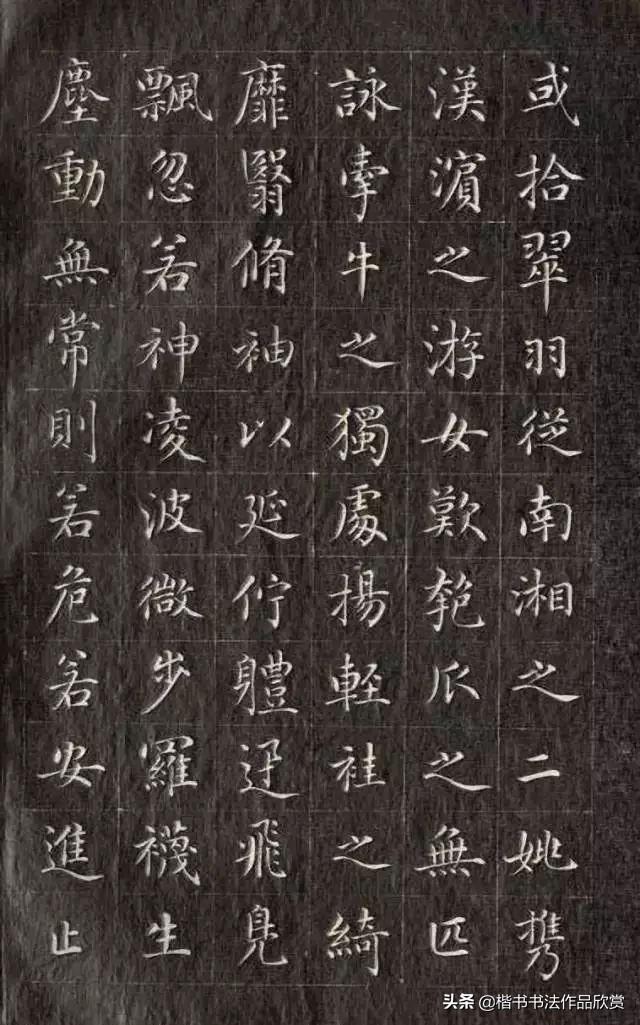 或拾翠羽從南湘之二姚攜
漢濱之游女歎匏瓜之無匹
詠牽牛之獨處揚輕袿之綺
靡翳脩袖以延佇體迅飛鳧
飄忽若神凌波微步羅襪生
塵動無常則若危若安進止
头条 @楷书书法作品欣赏